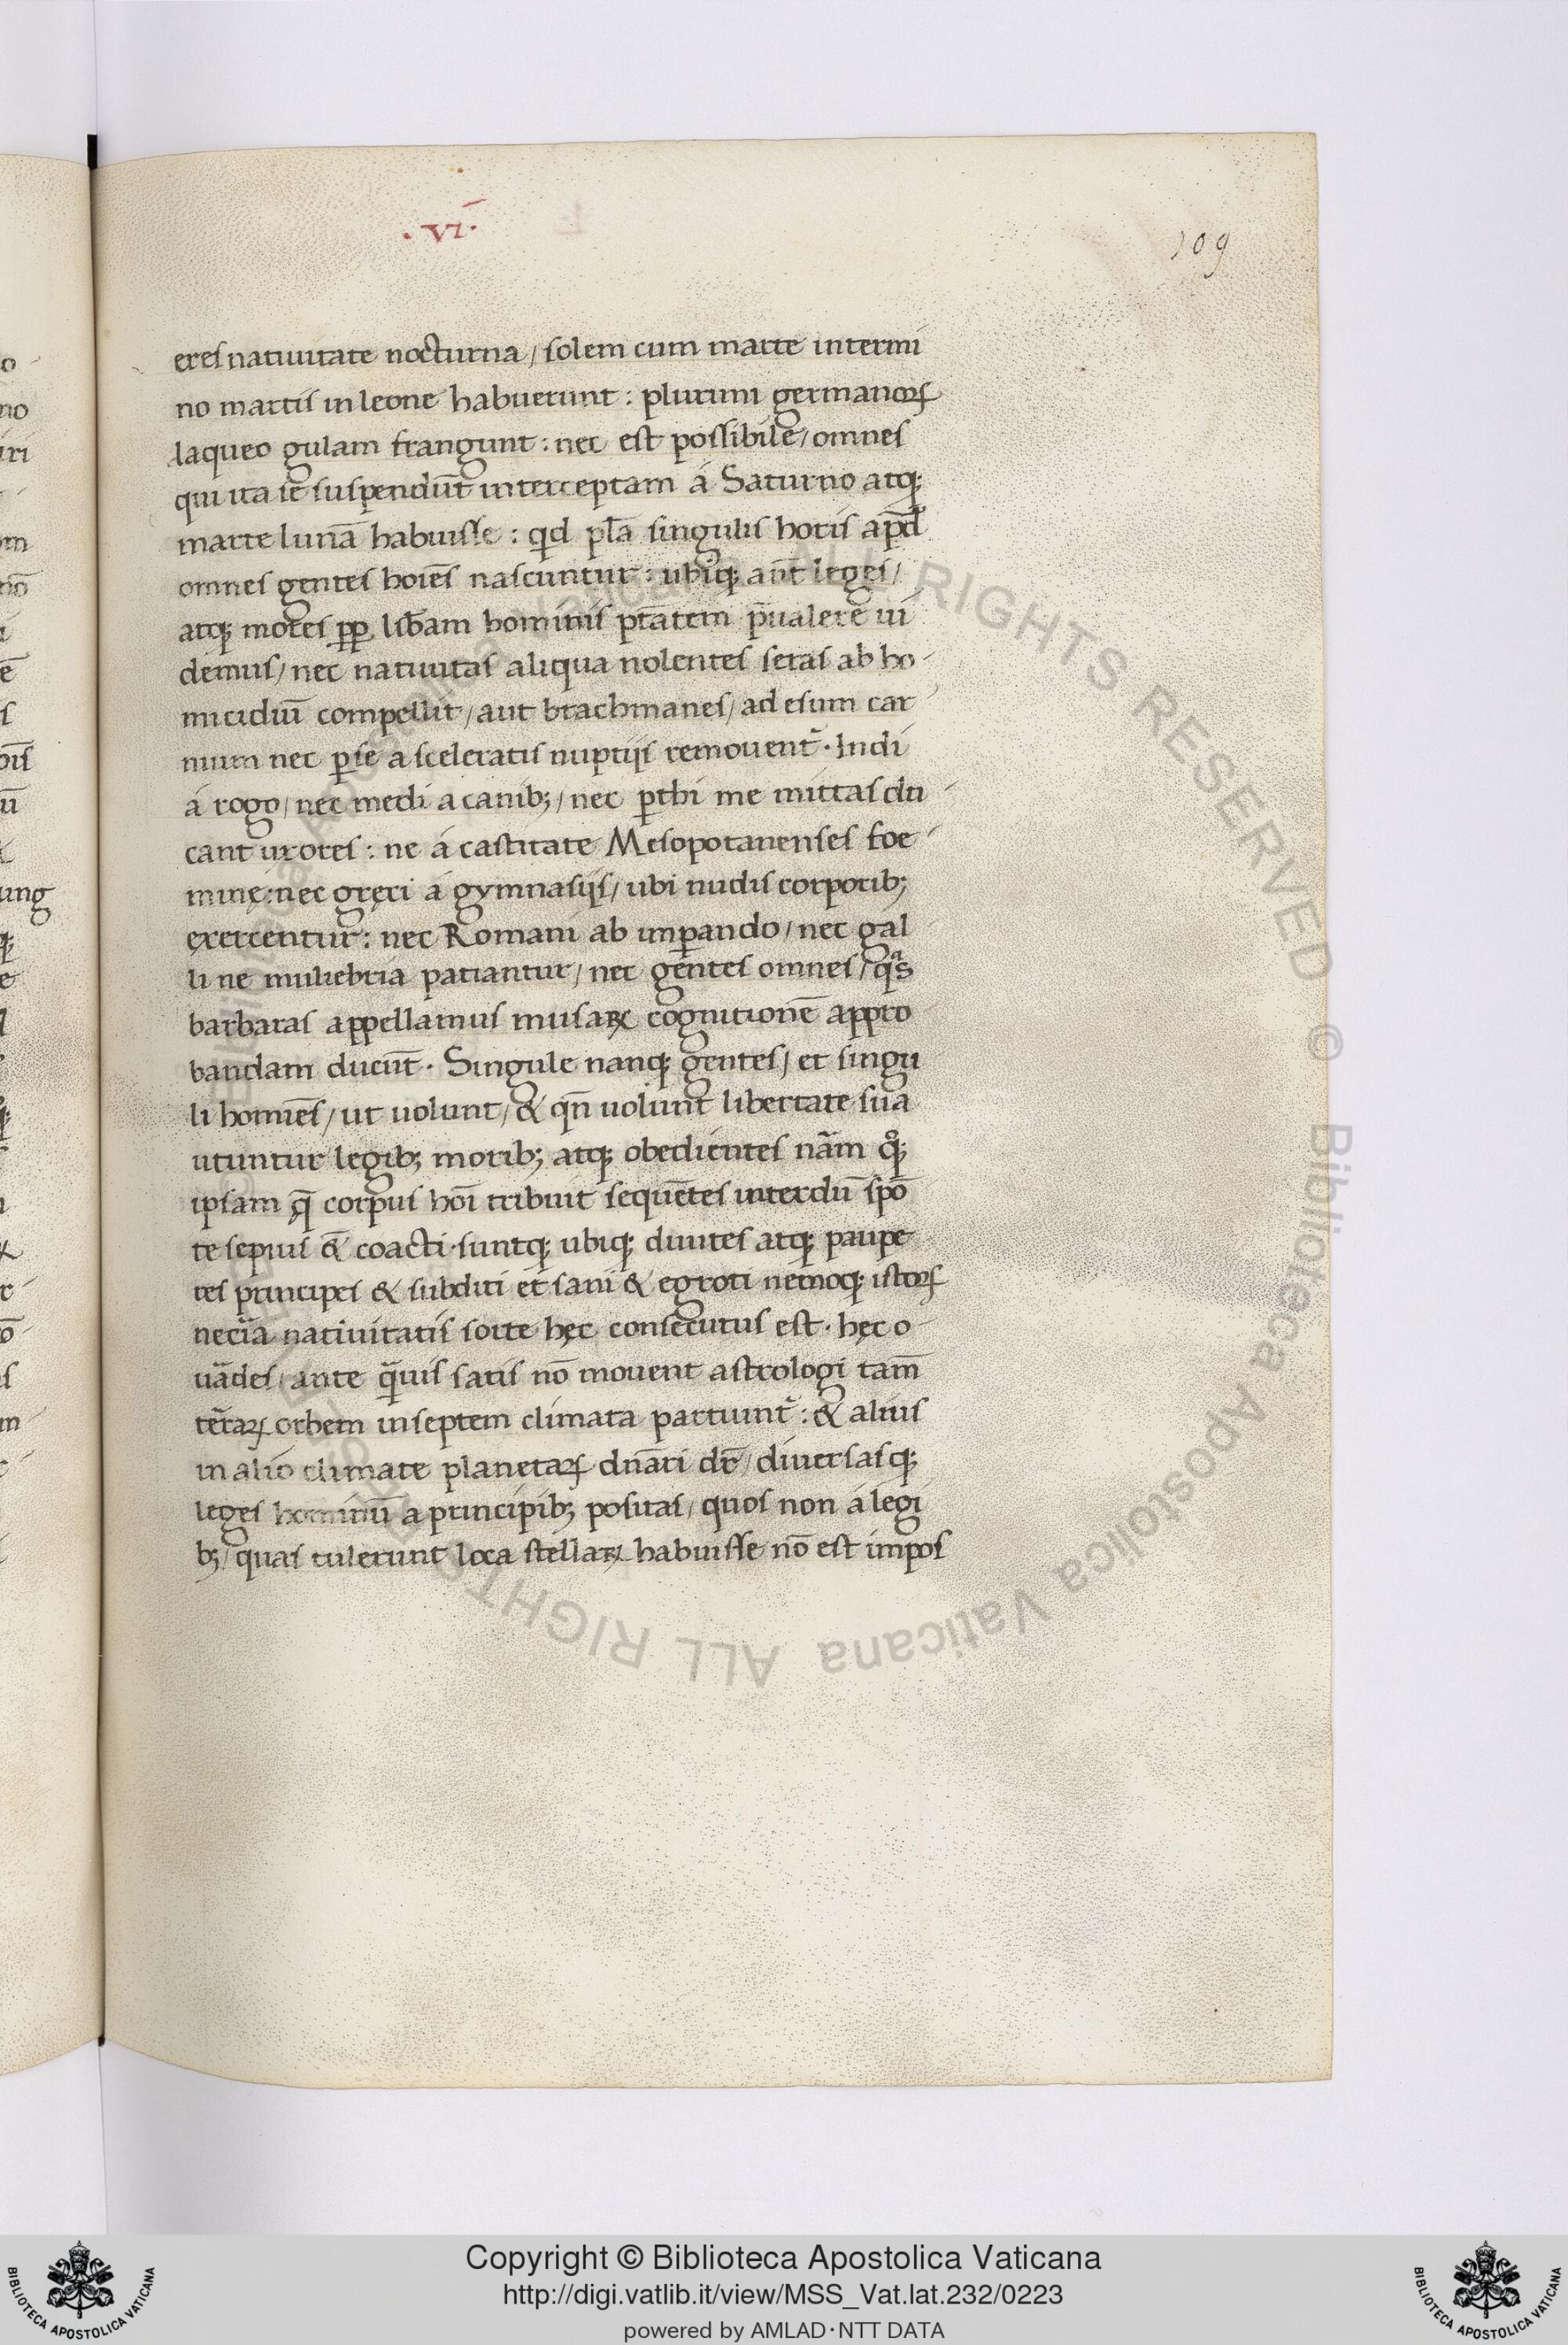 ·VI·
109
eres natiuitate nocturna / solem cum marte intermi
no martis in leone habuerunt : plurimi germanoꝝ
laqueo gulam frangunt : nec est possibile / omnes
qui ita se suspendūt interceptam á Saturno atqꝫ
marte lunā habuisse : qd pl̄a singulis horis apd̄
omnes gentes hoiēs nascuntur : ubiqꝫ aūt leges /
atqꝫ mores ꝓp lib̄am hominis pt̄atem p̄ualere ui
demus / nec natiuitas aliqua nolentes seras ab ho-
micidiū compellit / aut brachmanes / ad esum car-
nium nec ꝑse a sceleratis nuptijs remouent̃. Indi
á rogo / nec medi a canibꝫ / nec ꝑthi me mittas du-
cant uxores : ne á castitate Mesopotanenses foe-
minę : nec gręci á gymnasijs / ubi nudis corporibꝫ
exercentur : nec Romani ab imꝑando / nec gal
li ne muliebria patiantur / nec gentes omnes / qͣs
barbaras appellamus musaꝝ cognitionē appro
bandam ducūt. Singule nanqꝫ gentes / et singu
li homiēs / ut uolunt / & qn̄ uolunt libertate sua
utuntur legibꝫ moribꝫ atqꝫ obedientes nãm qͦꝫ
ipsam q̄ corpus hoī tribuit sequētes interdū spō
te sepius & coacti. suntqꝫ ubiqꝫ diuites atqꝫ paupe
res principes & subditi et sani & egroti nemoqꝫ istoꝝ
necĩa natiuitatis sorte hęc consecutus est. hęc o-
uãdes / ante q̃uis satis nō mouent astrologi tam̄
terraꝝ orbem in septem climata partiunt̃ : & alius
in alio climate planetaꝝ dn̄ari dr̄ / diuersasqꝫ
leges hominū a principibꝫ positas / quos non á legi
bꝫ / quas tulerunt loca stellaꝝ habuisse nō est impos
o-
no
iri
om
nō
ē
s
ū
ung
qꝫ
e
r-
ō-
m-
© Biblioteca Apostolica Vaticana ALL RIGHTS RESERVED © Biblioteca Apostolica Vaticana ALL RIGHTS RESERVED
BIBLIOTECA APOSTOLICA VATICANA
Copyright © Biblioteca Apostolica Vaticana
http://digi.vatlib.it/view/MSS_Vat.lat.232/0223
powered by AMLAD·NTT DATA
BIBLIOTECA APOSTOLICA VATICANA